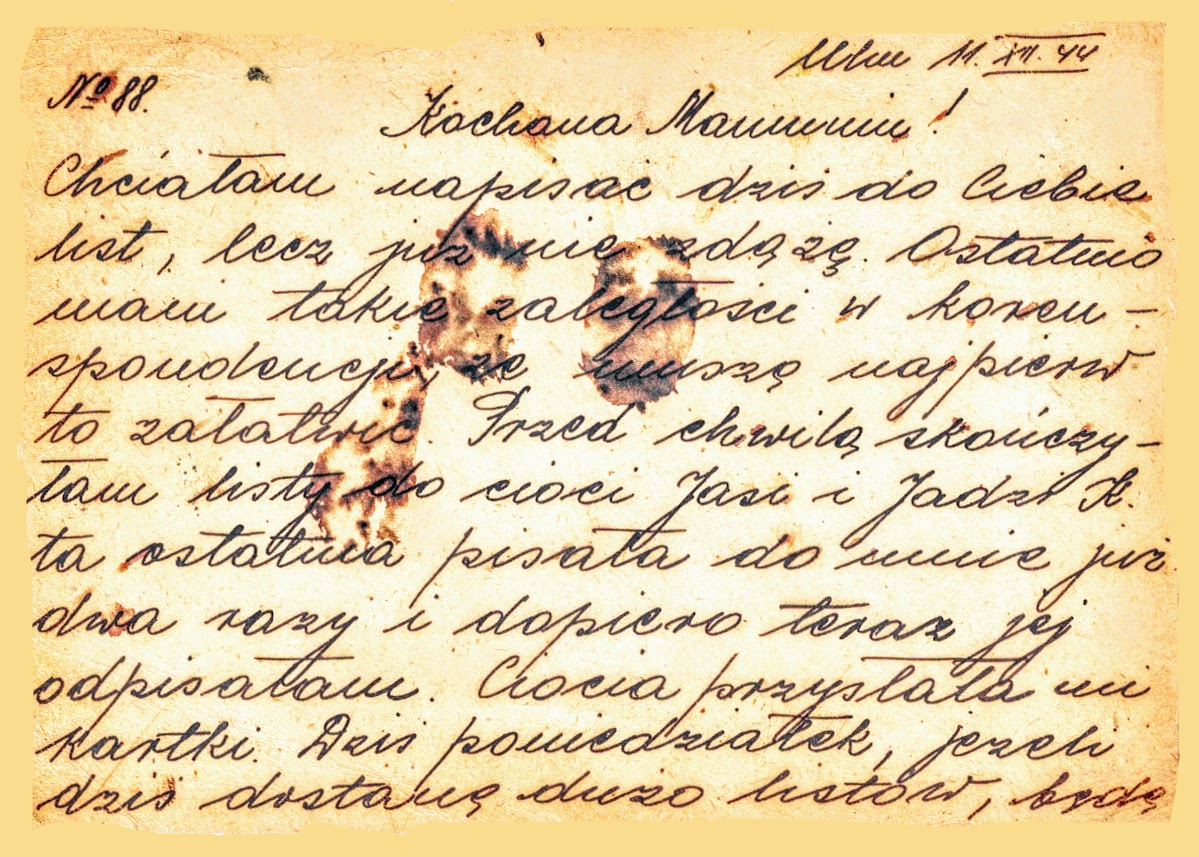 Ulm 11. XII. 44
No 88.
Kochana Mamuniu!
Chciałam napisać dziś do Ciebie
list, lecz już nie zdążę. Ostatnio
mam takie zaległości w koren-
spondencji, że muszę najpierw
to załatwić. Przed chwilą skończy-
łam listy do cioci Jasi i Jadzi K.
ta ostatnia pisała do mnie już
dwa razy i dopiero teraz jej
odpisałam. Ciocia przysłała mi
kartki. Dziś poniedziałek, jeżeli
dziś dostanę dużo listów, będę